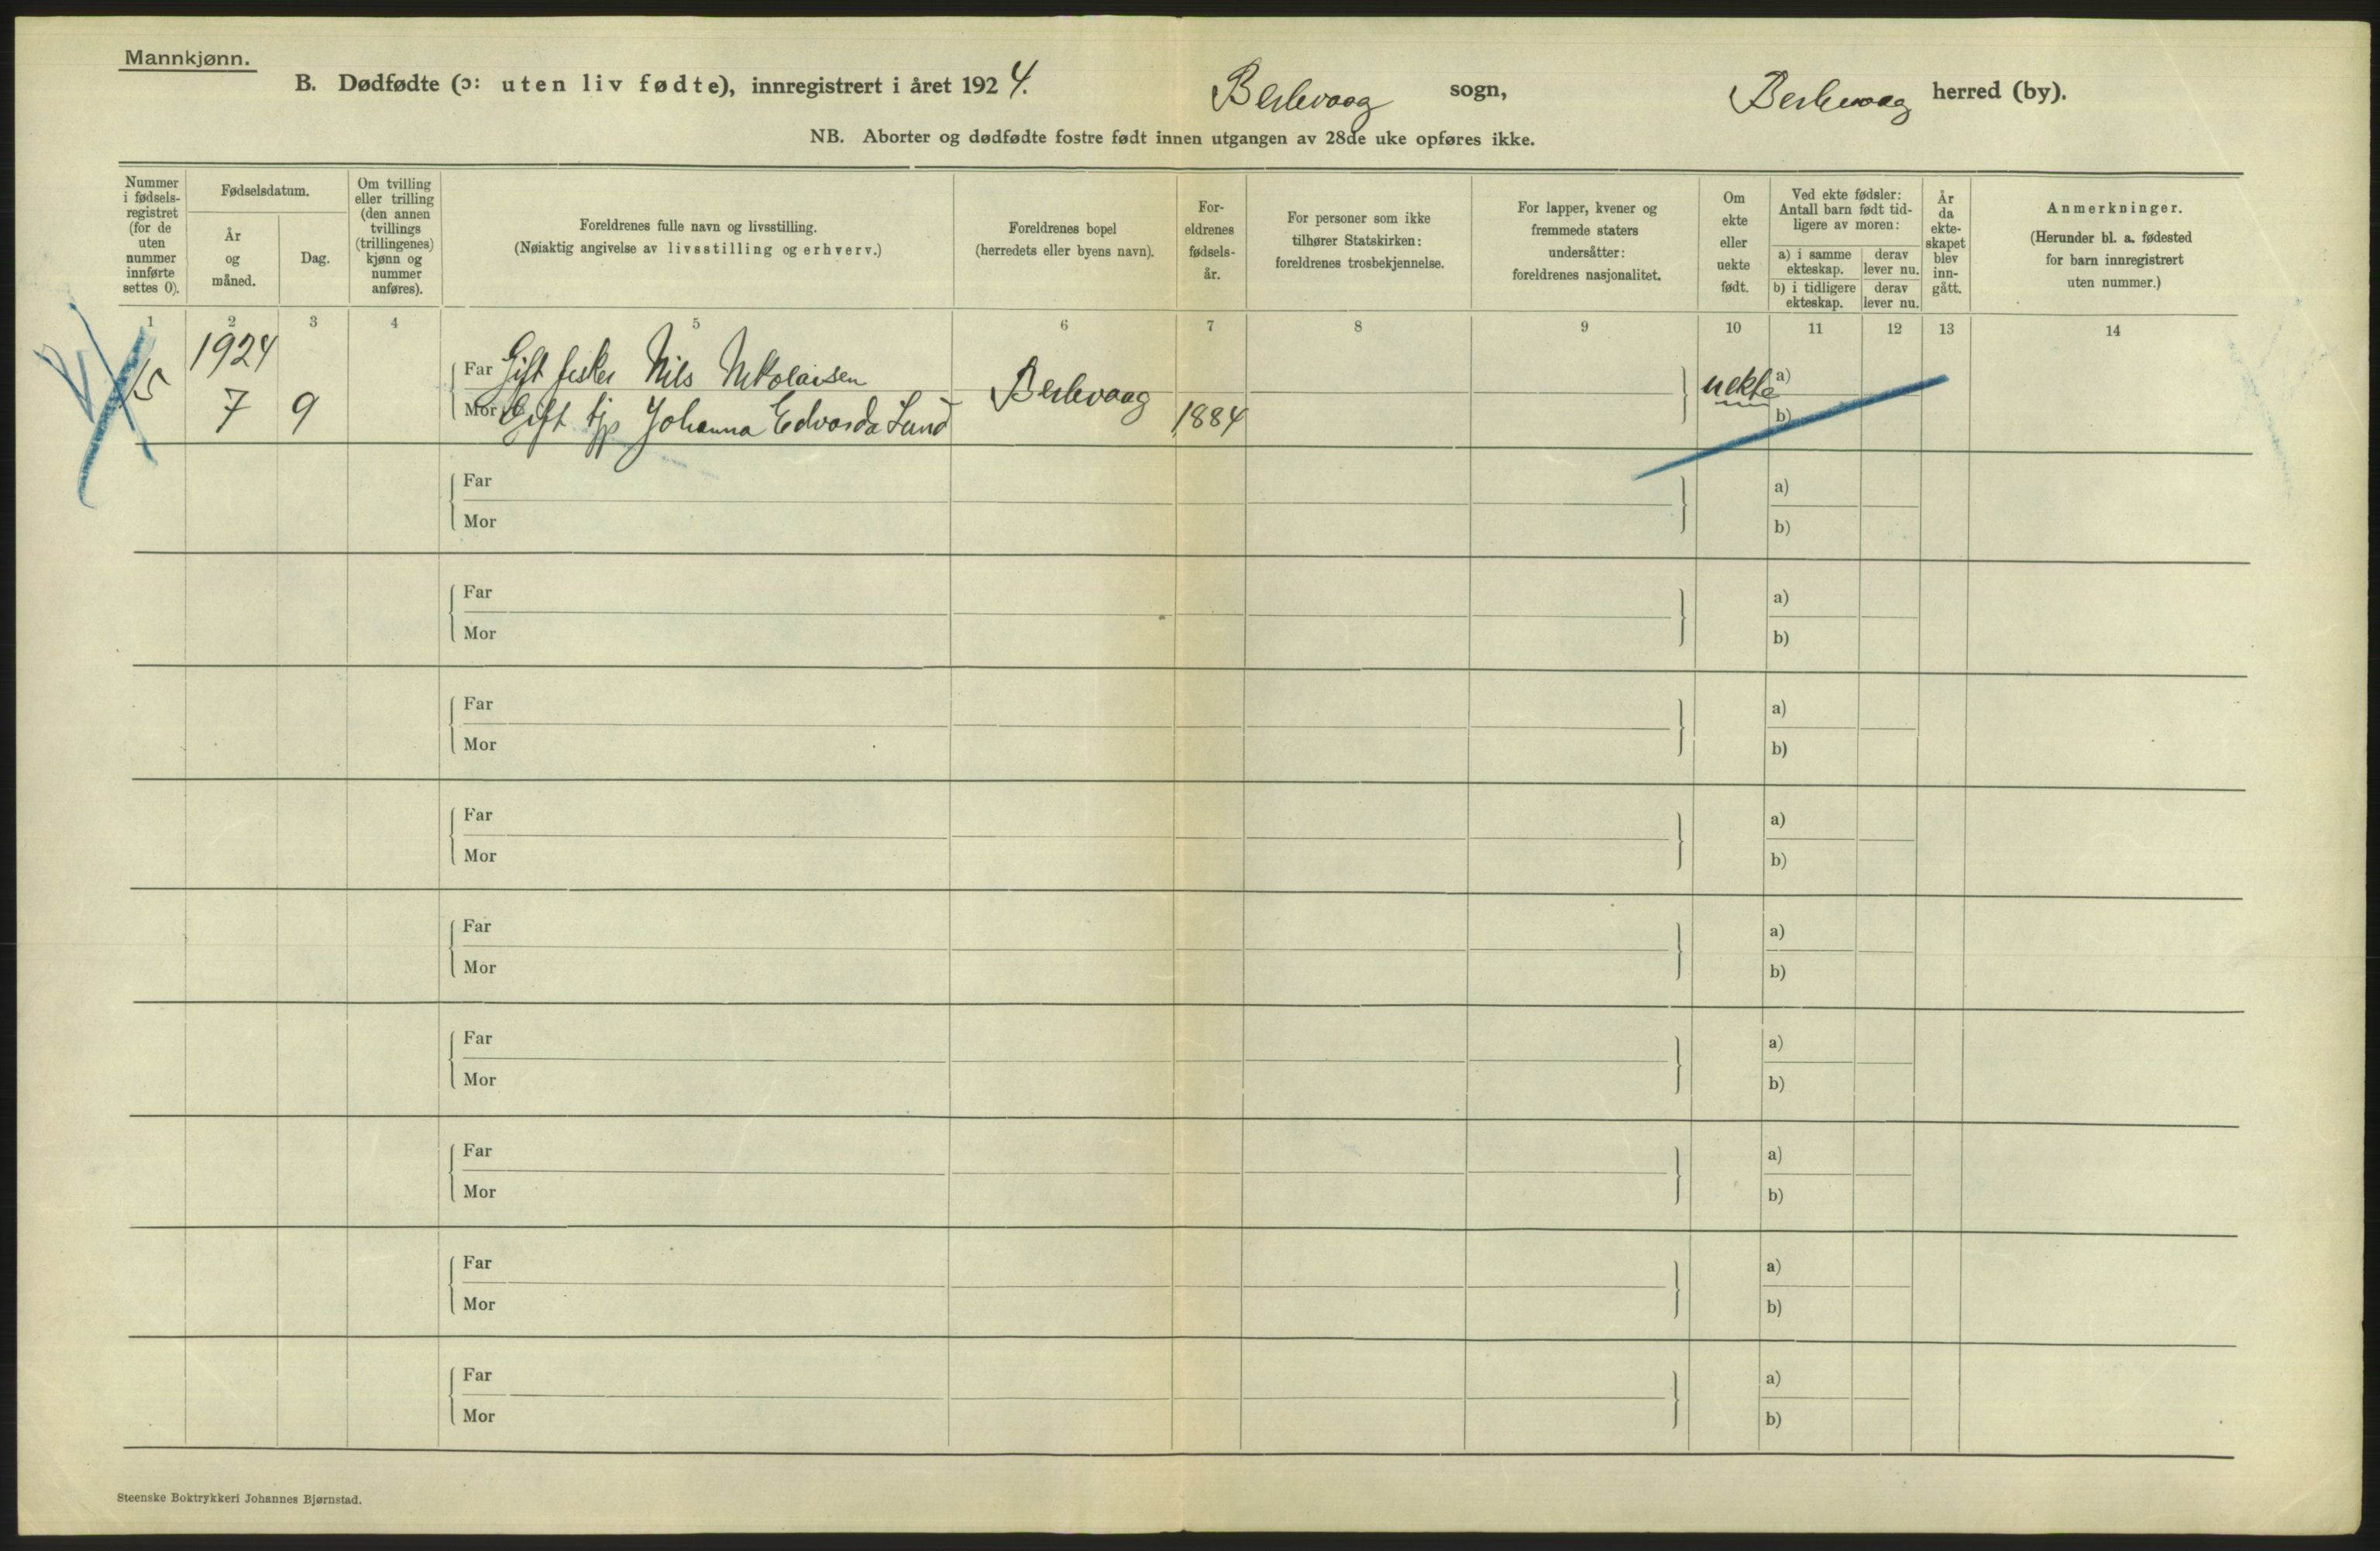 Mannkjønn.
B. Dødfødte (ɔ: uten liv fødte), innregistrert i året 1924. Berlevaag sogn, Berlevaag herred (by).
NB. Aborter og dødfødte fostre født innen utgangen av 28de uke opføres ikke.
Nummer
i fødsels-
registret
(for de
uten
nummer
innførte
settes 0).
Fødselsdatum.
År
og
måned.
Dag.
Om tvilling
eller trilling
(den annen
tvillings
(trillingenes)
kjønn og
nummer
anføres).
Foreldrenes fulle navn og livsstilling.
(Nøiaktig angivelse av livsstilling og erhverv.)
Foreldrenes bopel
(herredets eller byens navn).
For-
eldrenes
fødsels-
år.
For personer som ikke
tilhører Statskirken:
foreldrenes trosbekjennelse.
For lapper, kvener og
fremmede staters
undersåtter:
foreldrenes nasjonalitet.
Om
ekte
eller
uekte
født.
Ved ekte fødsler:
Antall barn født tid-
ligere av moren:
a) i samme
ekteskap.
derav
lever nu.
b) i tidligere
ekteskap.
derav
lever nu.
År
da
ekte-
skapet
blev
inn-
gått.
Anmerkninger.
(Herunder bl. a. fødested
for barn innregistrert
uten nummer.)
1 2 3 4 5 6 7 8 9 10 11 12 13 14
15
1924
7 9
Far Gift fisker Nils Nikolaisen
Mor Gift tjp Johanna Edvarda Lund
Berlevaag
1884
uekte
a)
b)
Far a)
Mor b)
Far a)
Mor b)
Far a)
Mor b)
Far a)
Mor b)
Far a)
Mor b)
Far a)
Mor b)
Far a)
Mor b)
Far a)
Mor b)
Far a)
Mor b)
Steenske Boktrykkeri Johannes Bjørnstad.